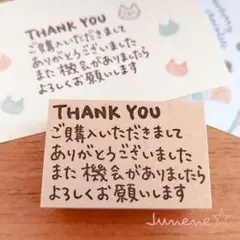 THANK YOU
ご購入いただきまして
ありがとうございました
また機会がありましたら
よろしくお願いします
THANK YOU
ご購入いただきまして
ありがとうございました
また機会がありましたら
よろしくお願いします
Junene☆